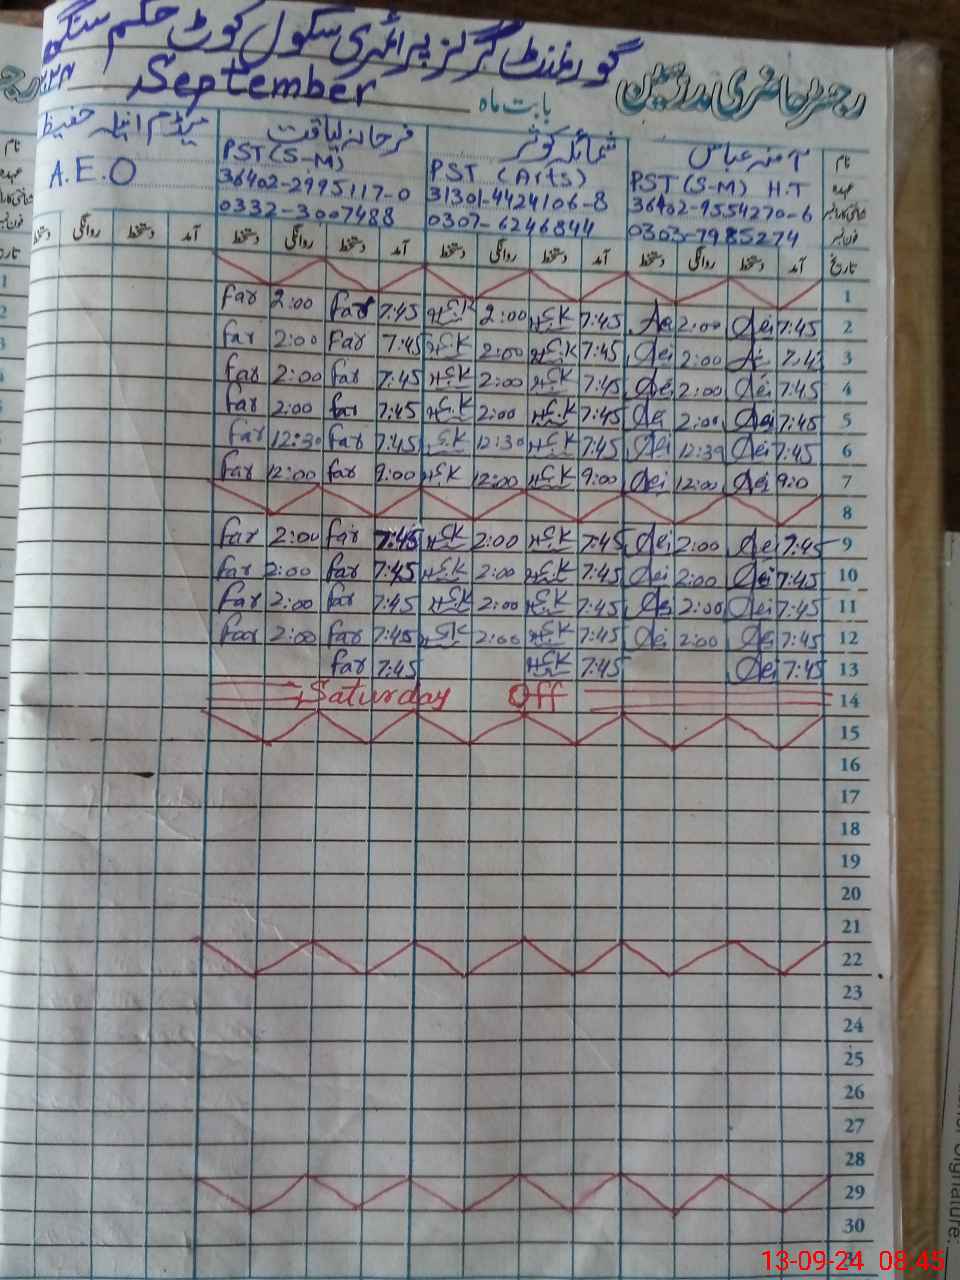 گورنمنٹ گرلز پرائمری سکول کوٹ حکم سنگھ
رجسٹر حاضری مدرسین بابت ماہ September
آمنہ عباس شمائلہ کوثر فرحانہ لیاقت میڈم انیلہ حفیظ
نام
PST (S-M) H.T PST (Arts) PST (S-M) A.E.O
عہدہ
36402-9554270-6 31301-4424106-8 36402-2995117-0
شناختی کارڈ نمبر
0303-7985274 0307-6246844 0332-3007488
فون نمبر
تاریخ آمد دستخط روانگی دستخط آمد دستخط روانگی دستخط آمد دستخط روانگی دستخط آمد دستخط روانگی دستخط
1
far 2:00 far 7:45 K 2:00 K 7:45 2:00 7:45 2
far 2:00 Far 7:45 K 2:00 K 7:45 2:00 7:4 3
far 2:00 far 7:45 K 2:00 K 7:45 2:00 7:45 4
far 2:00 far 7:45 K 2:00 K 7:45 2:00 7:45 5
far 12:30 far 7:45 K 12:30 K 7:45 12:30 7:45 6
far 12:00 far 9:00 K 12:00 K 9:00 12:00 9:0 7
8
far 2:00 far 7:45 K 2:00 K 7:45 2:00 7:45 9
far 2:00 far 7:45 K 2:00 K 7:45 2:00 7:45 10
far 2:00 far 7:45 K 2:00 K 7:45 2:00 7:45 11
far 2:00 far 7:45 K 2:00 K 7:45 2:00 7:45 12
far 7:45 K 7:45 7:45 13
Saturday Off 14
15
16
17
18
19
20
21
22
23
24
25
26
27
28
29
30
13-09-24 08:45
ignature: